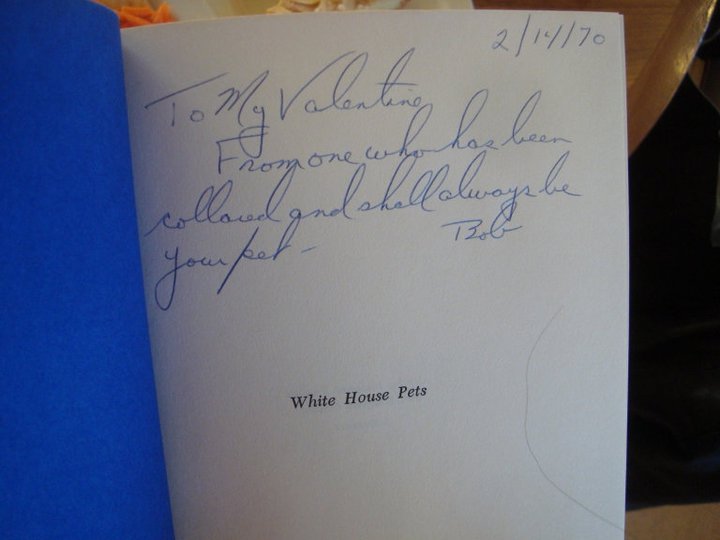 2/14/70
To My Valentine
From one who has been
collared and shall always be
your pet -
Bob
White House Pets